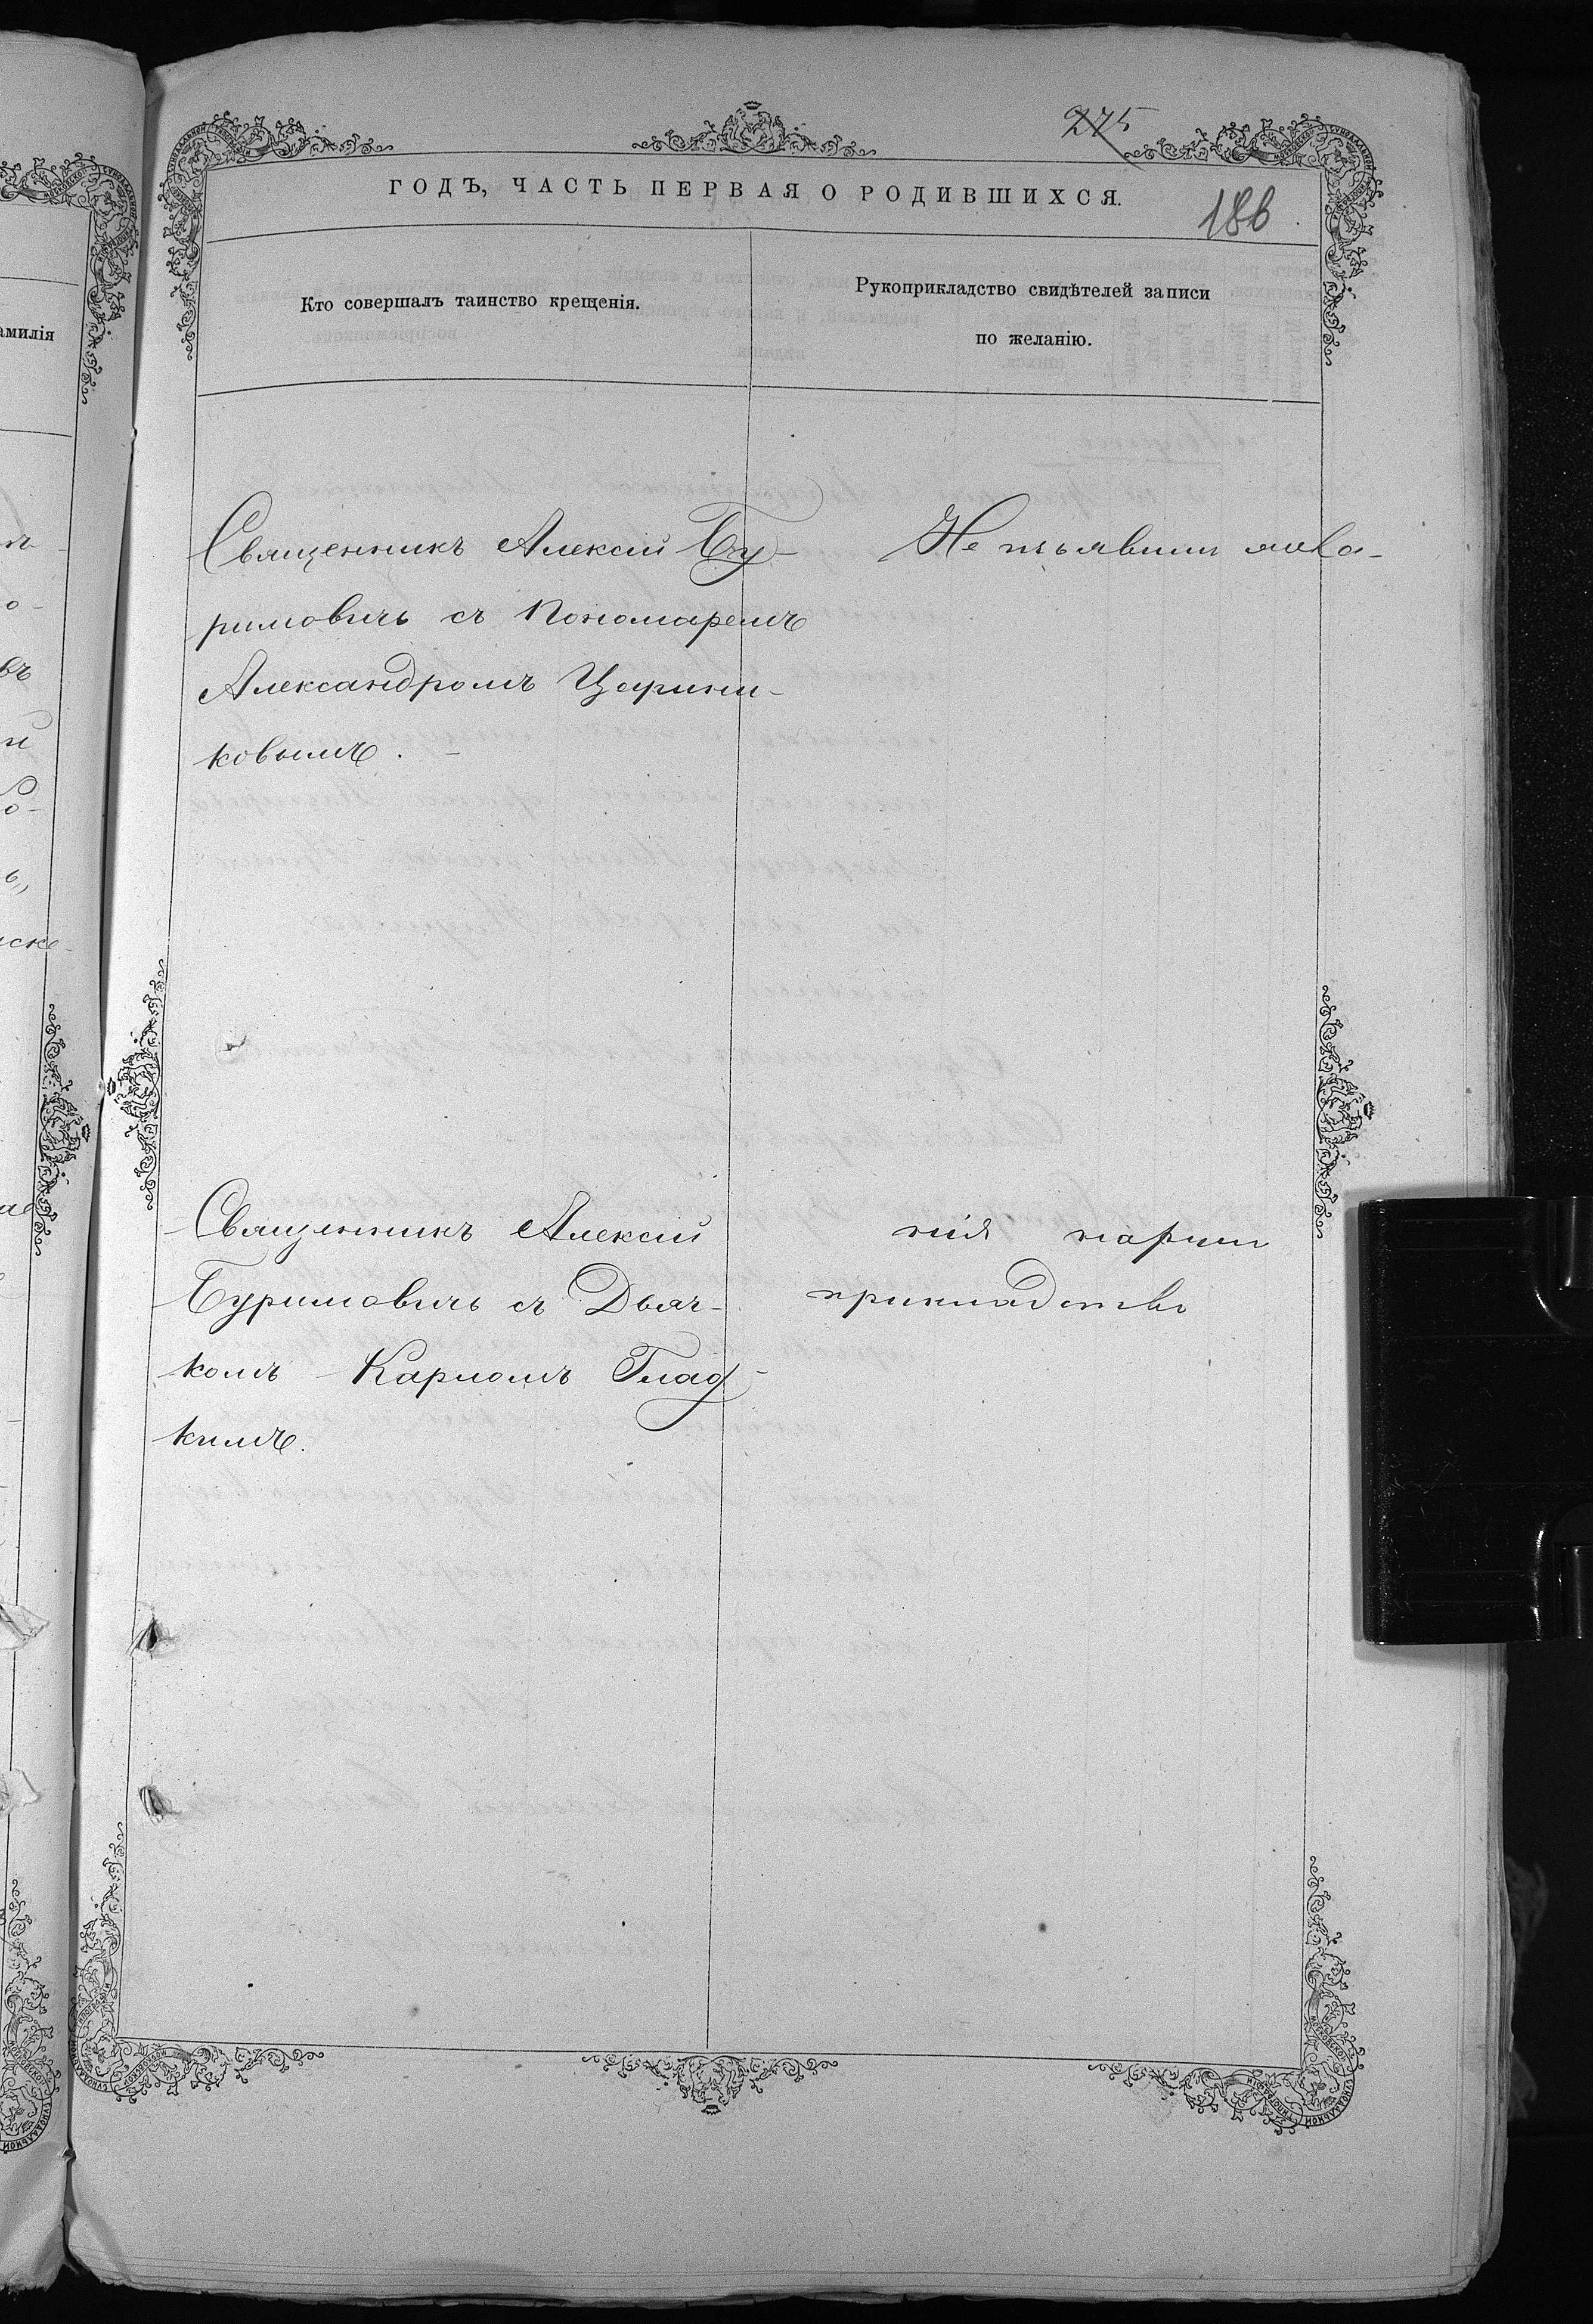 275
ГОДЪ, ЧАСТЬ ПЕРВАЯ О РОДИВШИХСЯ.
186
Кто совершалъ таинство крещенія.
Рукоприкладство свидѣтелей записи
по желанію.
амилія
Священникъ Алексій Бу-
римовичъ съ Пономаремъ
Александромъ
ковымъ.
Не
Священникъ Алексій
Буримовичъ съ Дьяч-
комъ Карпомъ Глад-
кимъ.
нія
прикладство